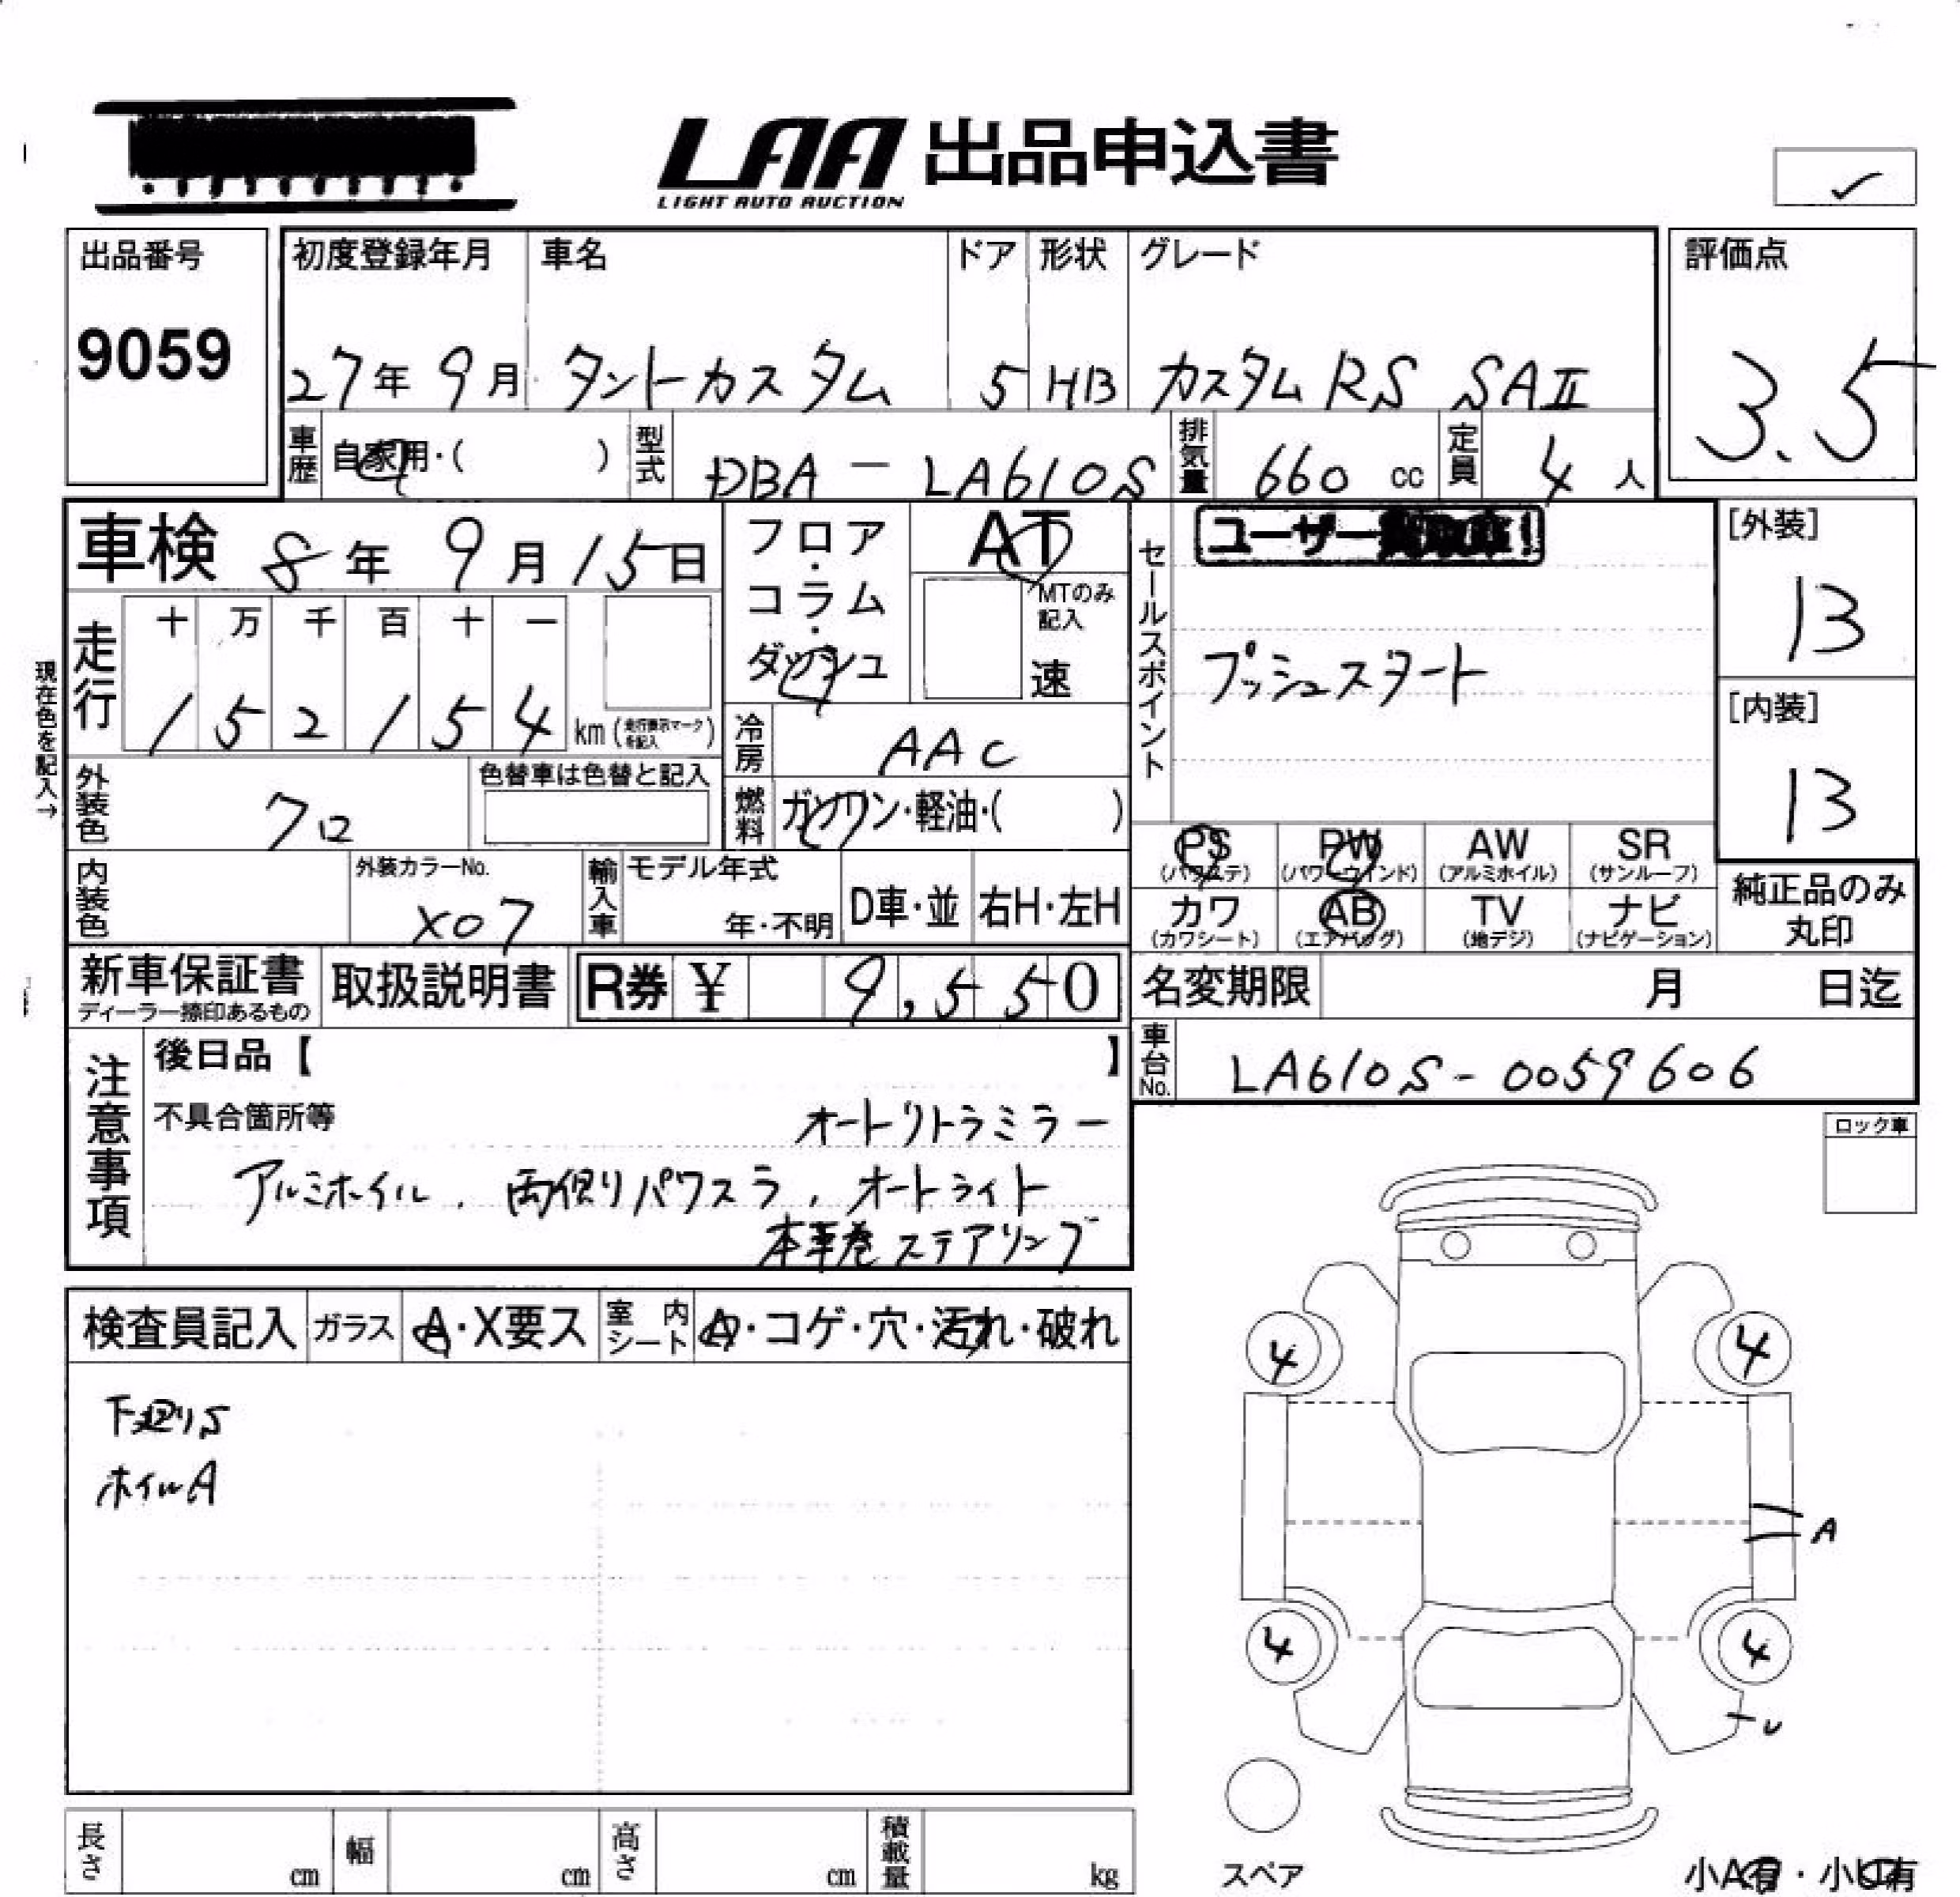 LAA 出品申込書
LIGHT AUTO AUCTION
出品番号
9059
初度登録年月 車名 ドア 形状 グレード
27年 9月 タントカスタム 5 HB カスタムRS SAⅡ
評価点
3.5
車歴 自家用・( ) 型式 DBA - LA610S 排気量 660 cc 定員 4 人
車検 8年 9月 15日
フロア・コラム・ダッシュ
AT
MTのみ記入
速
セールスポイント
ユーザー買取車!
プッシュスタート
[外装]
13
[内装]
13
現在色を記入→
走行
十 万 千 百 十 一
1 5 2 1 5 4 km (走行表示マークを記入)
冷房 AAC
外装色 クロ 色替車は色替と記入
燃料 ガソリン・軽油・( )
PS (パワステ) PW (パワーウインド) AW (アルミホイル) SR (サンルーフ)
カワ (カワシート) AB (エアバッグ) TV (地デジ) ナビ (ナビゲーション)
純正品のみ丸印
内装色 外装カラーNo. X07 輸入車 モデル年式 年・不明 D車・並 右H・左H
新車保証書 ディーラー捺印あるもの 取扱説明書 R券 ¥ 9,550
名変期限 月 日迄
車台No. LA610S-0059606
注意事項
後日品【 】
不具合箇所等 オートリトラミラー
アルミホイル、両側パワスラ、オートライト
本革巻ステアリング
ロック車
検査員記入 ガラス A・X要ス 室内シート A・コゲ・穴・汚れ・破れ
下廻りS
ホイルA
4 4
A
4 4
U
スペア
小A有・小U有
長さ cm 幅 cm 高さ cm 積載量 kg